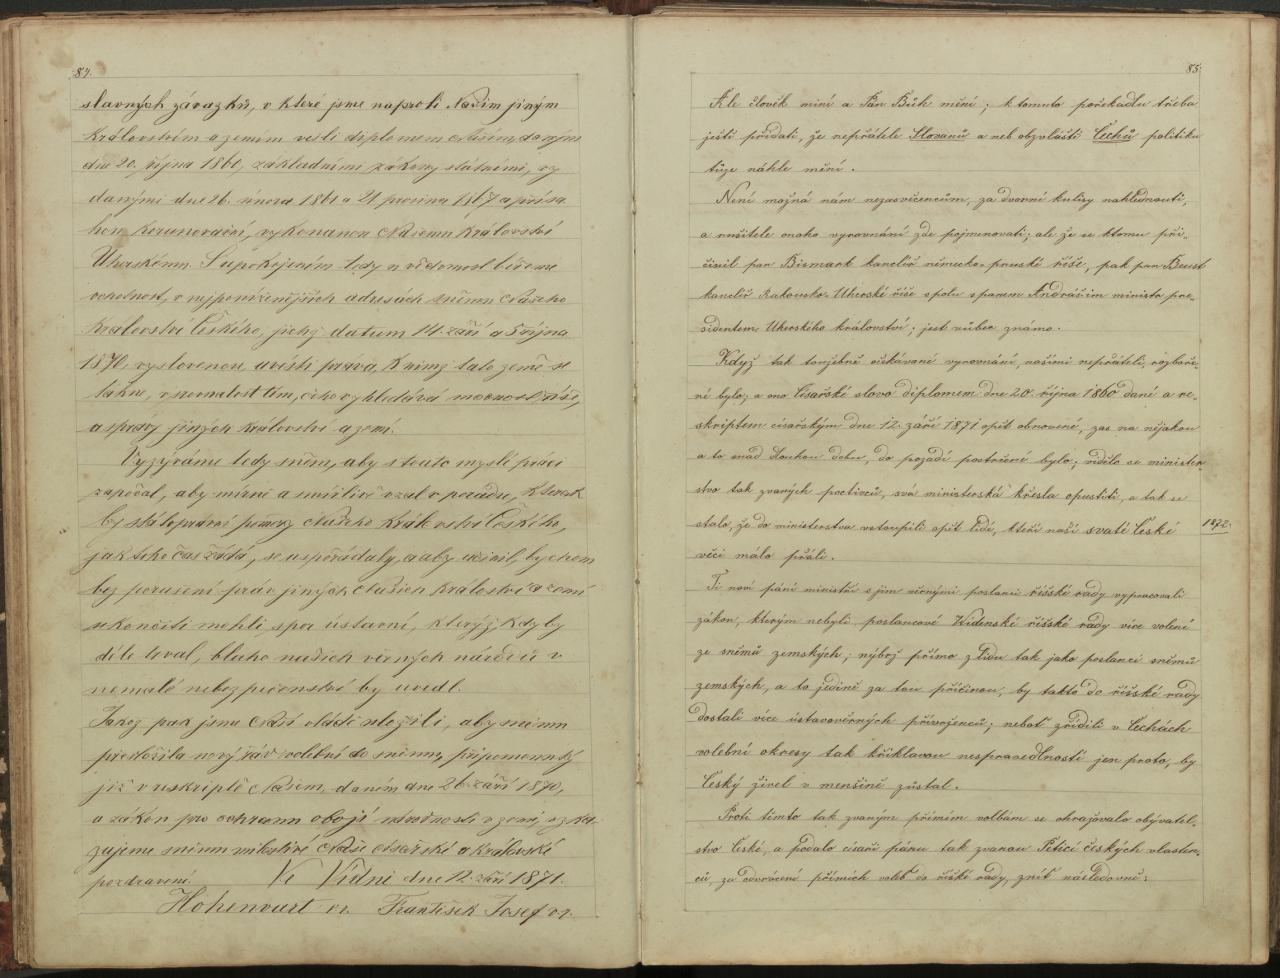 84.
slavných závazků, v které jsme naproti Našim jiným
královstvím a zemím vešli diplomem Naším, daným
dne 20. října 1860, základními zákony státními, vy
danými dne 26. února 1861 a 21. prosince 1867 a přísa
hou korunovační, vykonanou Našemu království
Uherskému. S upokojením tedy u vědomost béřeme
ochotnost, v nejponíženějších adresách sněmu Našeho
království Českého, jichž datum 14. září a 5 října
1870, vyslovenou uvésti práva, k nimž tato země se
táhne, v srovnalost tím, čeho vyhledává mocnost říše,
a správy jiných království a zemí.
Vyzýváme tedy sněm, aby s touto myslí práci
započal, aby mírně a smířlivě vzal v poradu, kterak
by státoprávní poměry Našeho království Českého,
jak toho čas žádá, se uspořádaly, a aby učinil, bychom
bez porušení práv jiných Našich království a zemí
ukončiti mohli spor ústavní, kterýž, kdyby
déle trval, blaho našich věrných národů v
nemalé nebezpečenství by uvedl.
Jakož pak jsme Naší vládě uložili, aby sněmu
předložila nový řád volební do sněmu, připomenutý
již v reskriptě Našem, daném dne 26. září 1870,
a zákon pro ochranu obojí národnosti v zemi, vzka-
zujeme sněmu milostivé Naše císařské a královské
pozdravení. Ve Vídni dne 12. září 1871.
Hohenwart vr. František Josef vr.
85.
Ale člověk míní a Pán Bůh mění; k tomuto pořekadlu třeba
ještě přidati, že nepřátele Slovanů a neb obzvláště Čechů politiku
tůze náhle mění.
Není možná nám nezasvěcencům, za dvorní kulisy nahlédnouti,
a rušitele onoho vyrovnání zde pojmenovati; ale že se k tomu při-
činil pan Bismark kancléř německo-pruské říše, pak pan Beust
kancléř Rakousko-Uherské říše spolu s panem Andrášim ministr pre-
sidentem Uherského království; jest vůbec známo.
Když tak toužebně očekávané vyrovnání, našimi nepřáteli rozboře-
né bylo; a ono Císařské slovo diplomem dne 20. října 1860 dané a re-
skriptem císařským dne 12. září 1871 opět obnovené, zas na nějakou
a to snad dlouhou dobu, do pozadí postrčené bylo; vidělo se minister-
stvo tak zvaných poctivců, svá ministerská křesla opustiti, a tak se
stalo, že do ministerstva vstoupili opět lidé, kteří naší svaté České
1872.
věci málo přáli.
Ti noví páni ministři s jim věrnými poslanci říšské rady vypracovali
zákon, kterým nebyli poslancové Vídenské říšské rady více volení
ze sněmů zemských; nýbrž přímo z lidu tak jako poslanci sněmů
zemských, a to jedině za tou příčinou, by takto do říšské rady
dostali více ústavověrných přívrženců; neboť zřídili v Čechách
volební okresy tak křiklavou nespravedlností jen proto, by
Český živel v menšině zůstal.
Proti těmto tak zvaným přímím volbám se ohražovalo obyvatel-
stvo České, a podalo císaři pánu tak zvanou Petici českých vlasten-
ců, za odvrácení přímích voleb do říšské rady, zníť následovně: